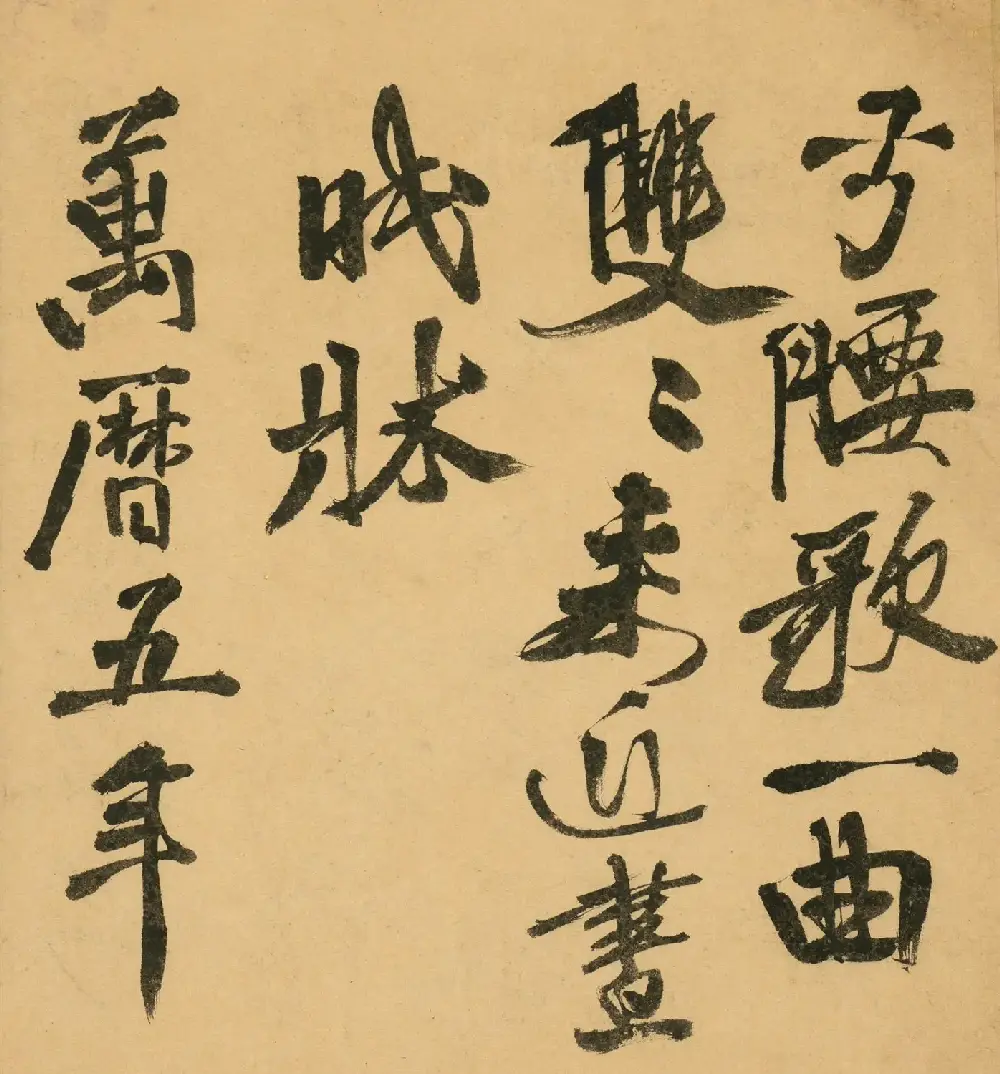 弓腰歌一曲
雙〻來近晝
眠牀
萬曆五年